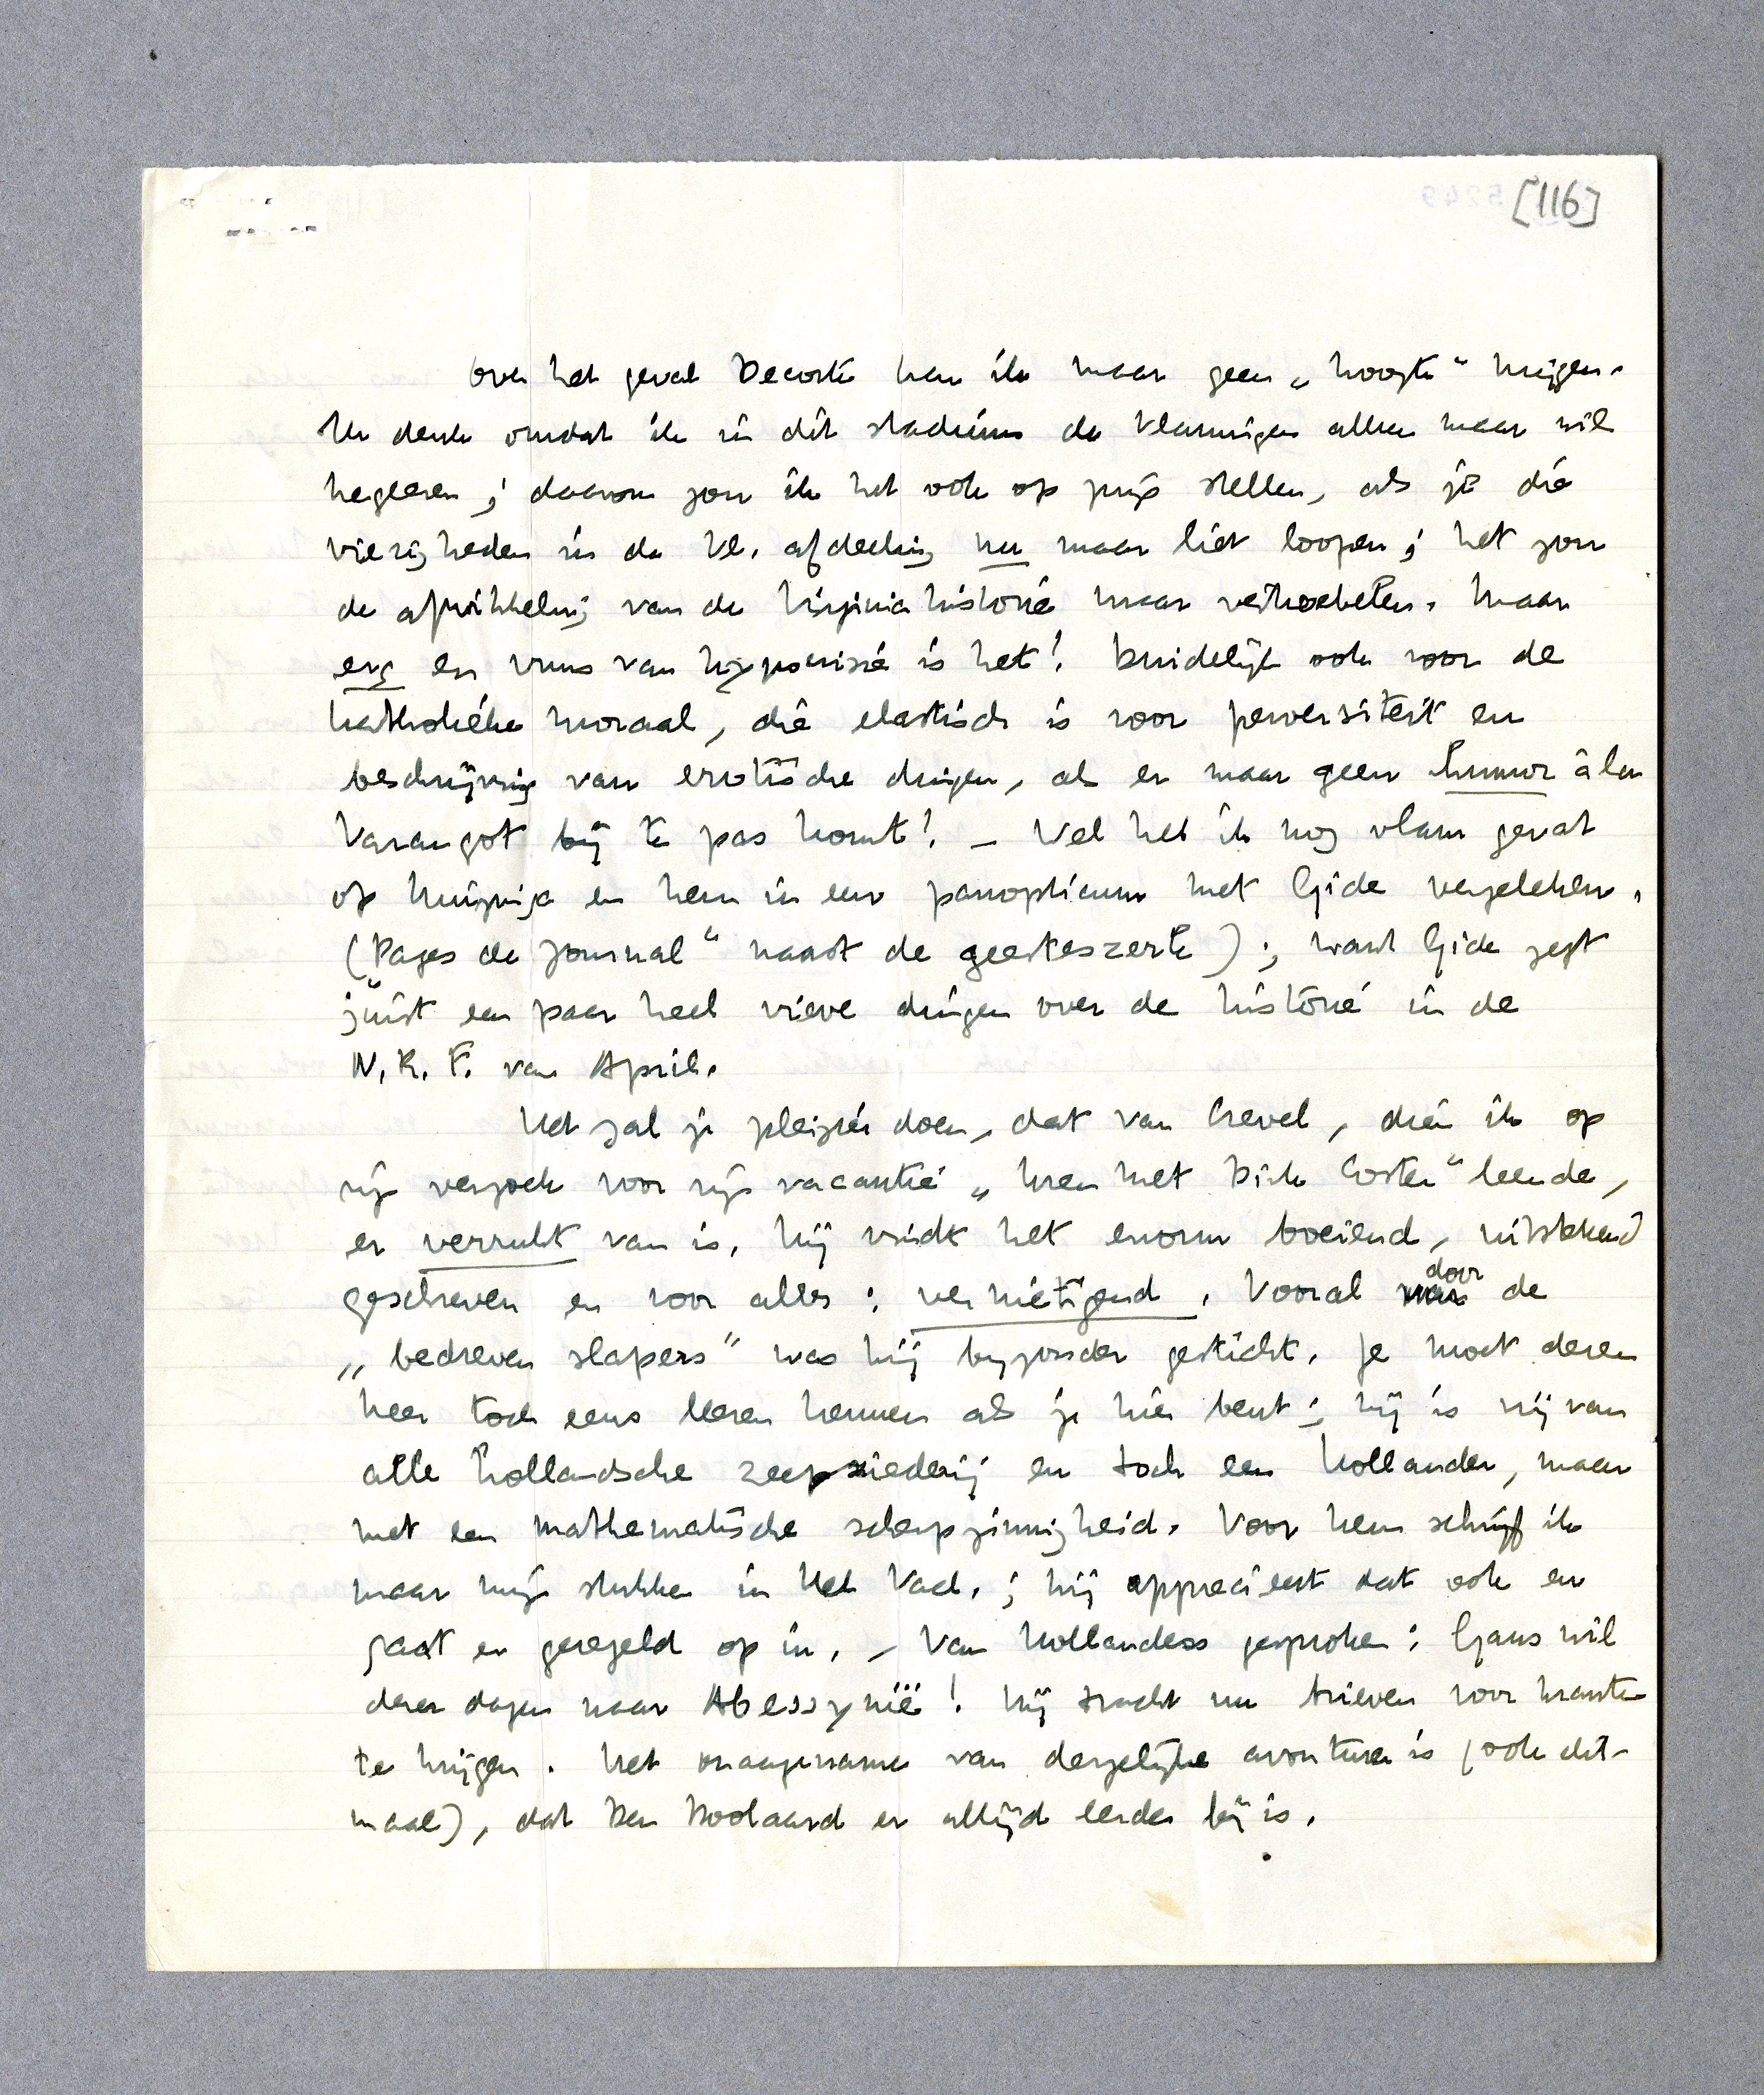 [116]
Over het geval Decorte kan ik maar geen „hoogte” krijgen.
Ik denk omdat ik in dit stadium de Vlamingen alleen maar wil
negeeren; daarom zou ik het ook op prijs stellen, als je die
viezigheden in de Vl. afdeeling nu maar liet loopen; het zou
de afwikkeling van de Virginia historie maar vertroebelen. Maar
erg en vuns van hypocrisie is het! Duidelijk ook voor de
katholieke moraal, die elastisch is voor perversiteit en
beschrijving van erotische dingen, als er maar geen humor à la
Varangot bij te pas komt! – Wel heb ik nog vlam gevat
op Huizinga en hem in een panopticum met Gide vergeleken,
(Pages de Journal” naast de geesteszerk); want Gide zegt
júist een paar heel rieve dingen over de historie in de
N.R.F. van April.
Het zal je pleizier doen, dat van Crevel, dien ik op
zijn verzoek voor zijn vacantie „Uren met Dirk Coster” leende,
er verrukt van is. Hij vindt het enorm boeiend, uitstekend
geschreven en voor alles: vernietigend. Vooral door de
„bedreven slapers” was hij bijzonder gesticht. Je moet dezen
heer toch eens leeren kennen als je hier bent; hij is vrij van
alle hollandsche zeepziederij en toch een hollander, maar
met een mathematische scherpzinnigheid. Voor hem schrijf ik
maar mijn stukken in Het Vad.; hij apprecieert dat ook en
gaat er geregeld op in. – Van hollanders gesproken: Gans wil
dezer dagen naar Abessynië! Hij tracht nu brieven voor kranten
te krijgen. Het onaangename van dergelijke avonturen is (ook dit-
maal), dat Den Doolaard er altijd eerder bij is.